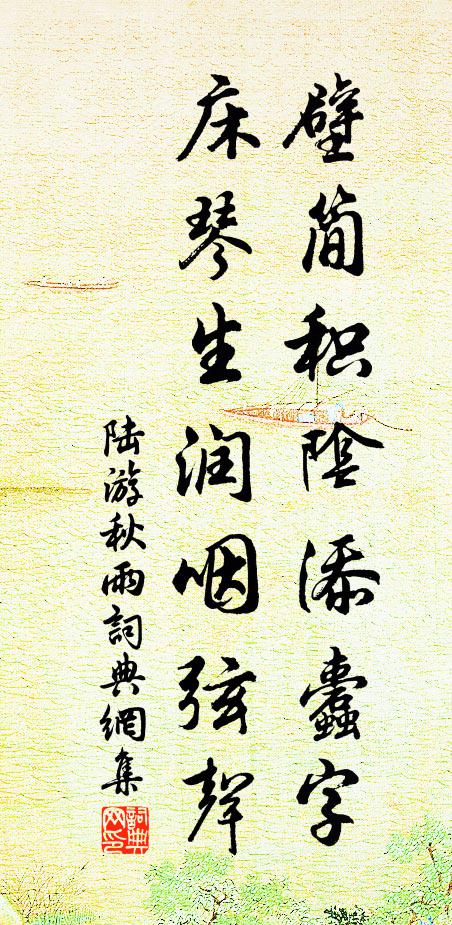 壁简积陰添蠹字
床琴生润咽弦聲
陆游秋雨詞典網集
詞典网印